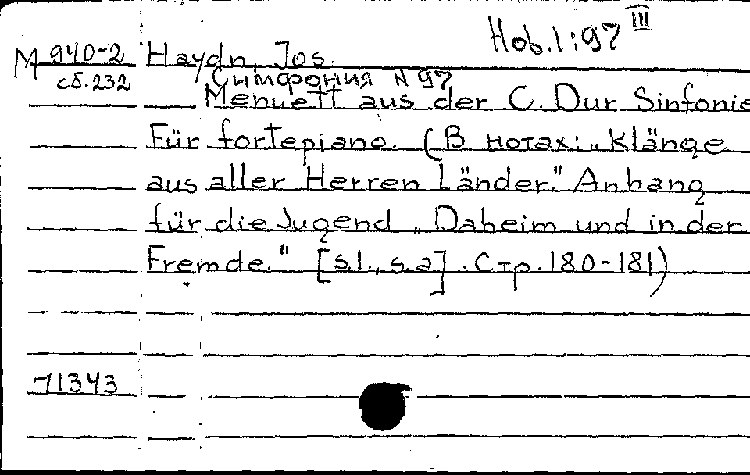 Hob.I:97 III
M 940-2 Haydn, Jos.
сб.232 Симфония N 97
Menuett aus der C. Dur Sinfonie
Für fortepiano. (В нотах: „Klänge
aus aller Herren Länder." Anhang
für die Jugend „Daheim und in der
Fremde." [s.l., s.a]. Стр. 180-181)
71343